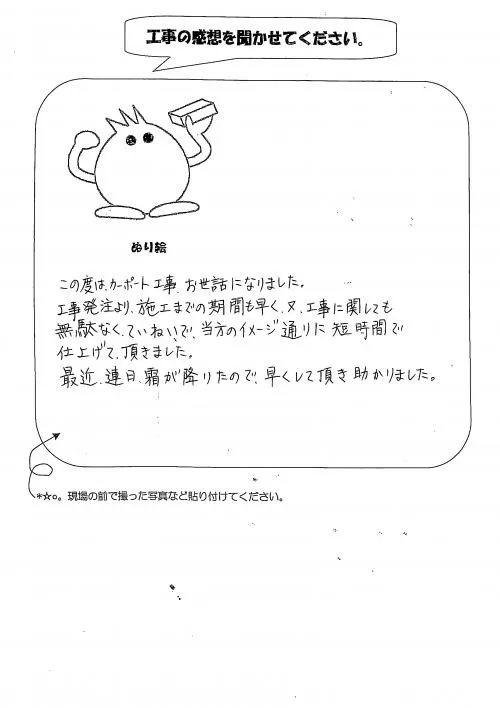 工事の感想を聞かせてください。
ぬり絵
この度は、カーポート工事、お世話になりました。
工事発注より、施工までの期間も早く、又、工事に関しても
無駄なく、ていねいで、当方のイメージ通りに短時間で
仕上げて、頂きました。
最近、連日、霜が降りたので、早くして頂き助かりました。
*☆○。現場の前で撮った写真など貼り付けてください。